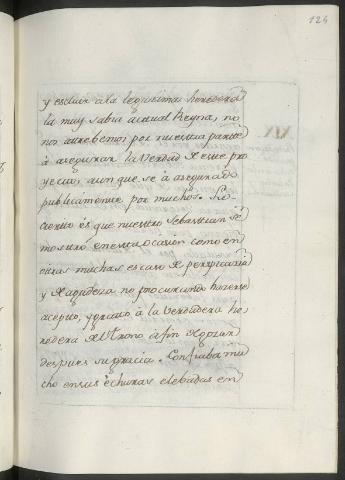 124
y escluir a la legitima heredera
la muy sabia actual Reyna, no
nos atrebemos por nuestra parte
à asegurar la verdad de este pro
yecto, aunque se à asegurado
publicamente por muchos. Lo
cierto és que nuestro Sebastian se
mostrò en esta ocasion como en
otras muchas escaso de perspicacia
y de agudeza no procurando hacerse
acepto, y grato à la verdadera he
redera del trono à fin de lograr
despues su gracia. Confiaba mu
cho en sus échuras elebadas en